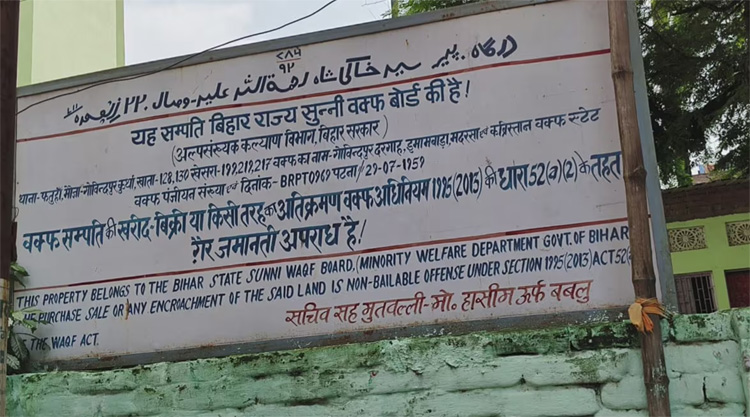 ۷۸۶
۹۲
درگاہ پیر سید خاکی شاہ رحمۃ اللہ علیہ وصال ۲۲
यह सम्पति बिहार राज्य सुन्नी वक्फ बोर्ड की है!
(अल्पसंख्यक कल्याण विभाग, बिहार सरकार)
थाना- फतुहा, मौजा-गोविन्दपुर कुर्था, खाता-128,130 खेसरा-199,219,217 वक्फ का नाम-गोविन्दपुर दरगाह, इमामबाड़ा, मदरसा एवं कब्रिस्तान वक्फ स्टेट
वक्फ पंजीयन संख्या एवं दिनांक- BRPT0969 पटना/29-07-1959
वक्फ सम्पति की खरीद-बिक्री या किसी तरह का अतिक्रमण वक्फ अधिनियम 1995 (2013) की धारा 52(a)(2) के तहत
ग़ैर जमानती अपराध है!
THIS PROPERTY BELONGS TO THE BIHAR STATE SUNNI WAQF BOARD, (MINORITY WELFARE DEPARTMENT GOVT. OF BIHAR
HE PURCHASE SALE OR ANY ENCROACHMENT OF THE SAID LAND IS NON-BAILABLE OFFENSE UNDER SECTION 1995 (2013) ACT 52(
F THE WAQF ACT.
सचिव सह मुतवल्ली-मो. हासीम ऊर्फ बबलु